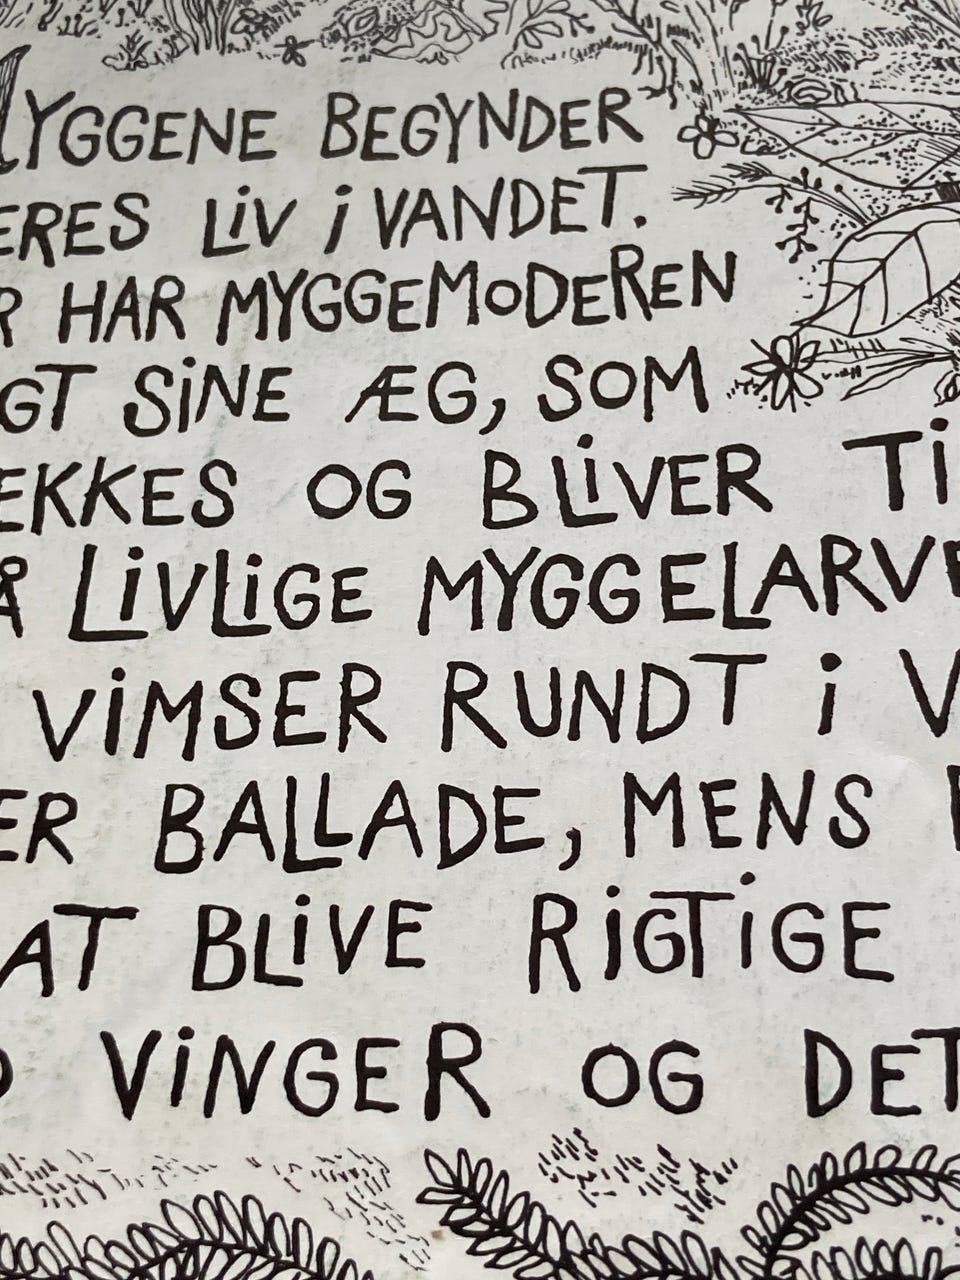 MYGGENE BEGYNDER
ERES LiV i VANDET.
R HAR MYGGEMODEREN
GT SiNE ÆG, SOM
EKKES OG BLiVER Ti
Å LiVLiGE MYGGELARVE
ViMSER RUNDT i V
ER BALLADE, MENS
AT BLiVE RiGTiGE
ViNGER OG DET